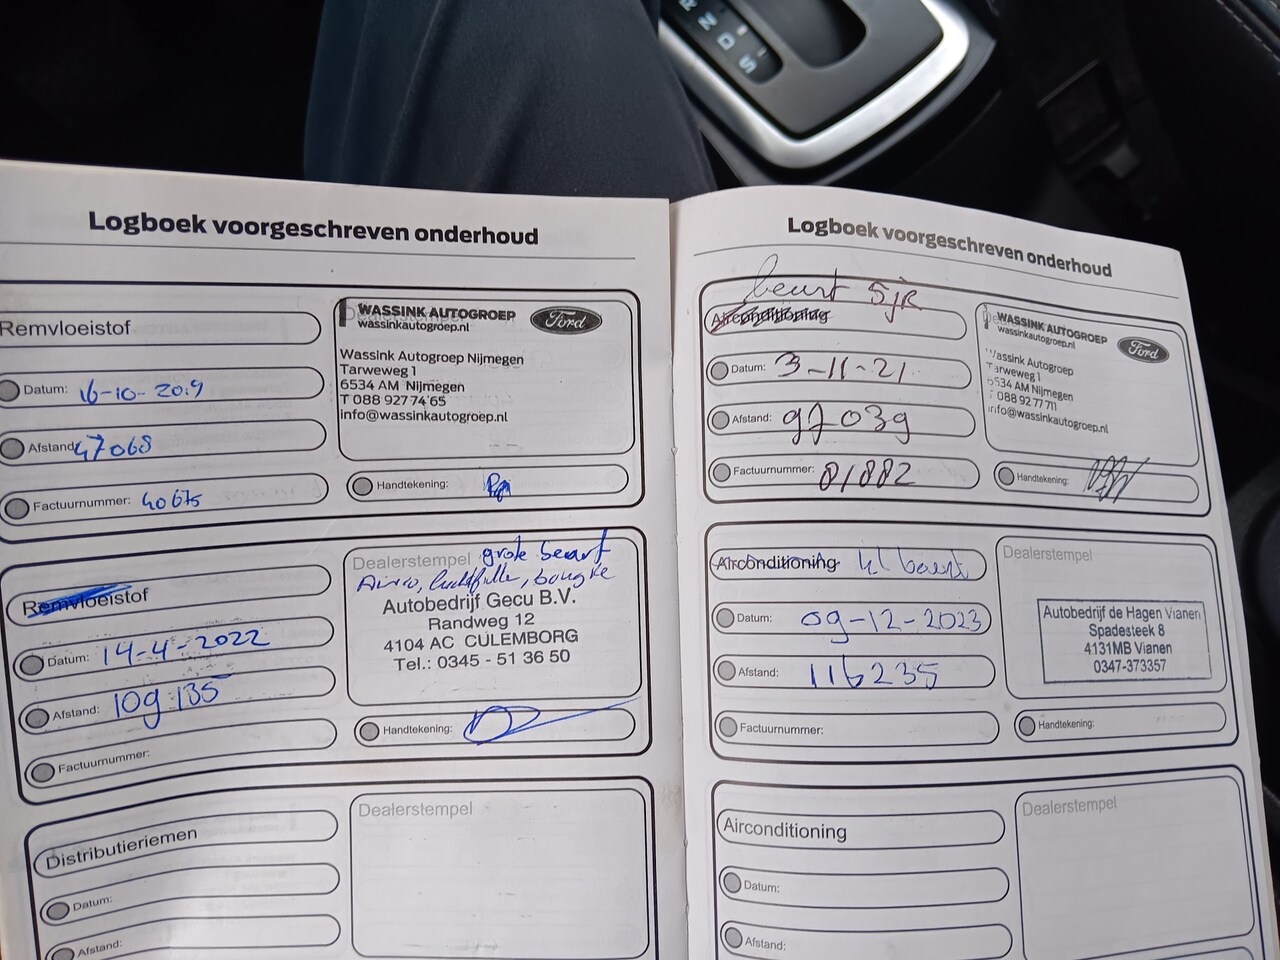 R
N
D
S
Logboek voorgeschreven onderhoud
Remvloeistof
Datum: 16-10-2019
Afstand: 47068
Factuurnummer: 40675
WASSINK AUTOGROEP
wassinkautogroep.nl
Ford
Wassink Autogroep Nijmegen
Tarweweg 1
6534 AM Nijmegen
T 088 927 74 65
info@wassinkautogroep.nl
Handtekening:
Remvloeistof
Datum: 14-4-2022
Afstand: 109 135
Factuurnummer:
Dealerstempel grote beurt
Airco, luchtfilter, bougie
Autobedrijf Gecu B.V.
Randweg 12
4104 AC CULEMBORG
Tel.: 0345 - 51 36 50
Handtekening:
Distributieriemen
Datum:
Afstand:
Dealerstempel
Logboek voorgeschreven onderhoud
beurt 5jr
Airconditioning
Datum: 3-11-21
Afstand: 97039
Factuurnummer: 81882
WASSINK AUTOGROEP
wassinkautogroep.nl
Ford
Wassink Autogroep
Tarweweg 1
6534 AM Nijmegen
T 088 927 77 11
info@wassinkautogroep.nl
Handtekening:
Airconditioning kl beurt
Datum: 09-12-2023
Afstand: 116235
Factuurnummer:
Dealerstempel
Autobedrijf de Hagen Vianen
Spadesteek 8
4131MB Vianen
0347-373357
Handtekening:
Airconditioning
Datum:
Afstand:
Dealerstempel